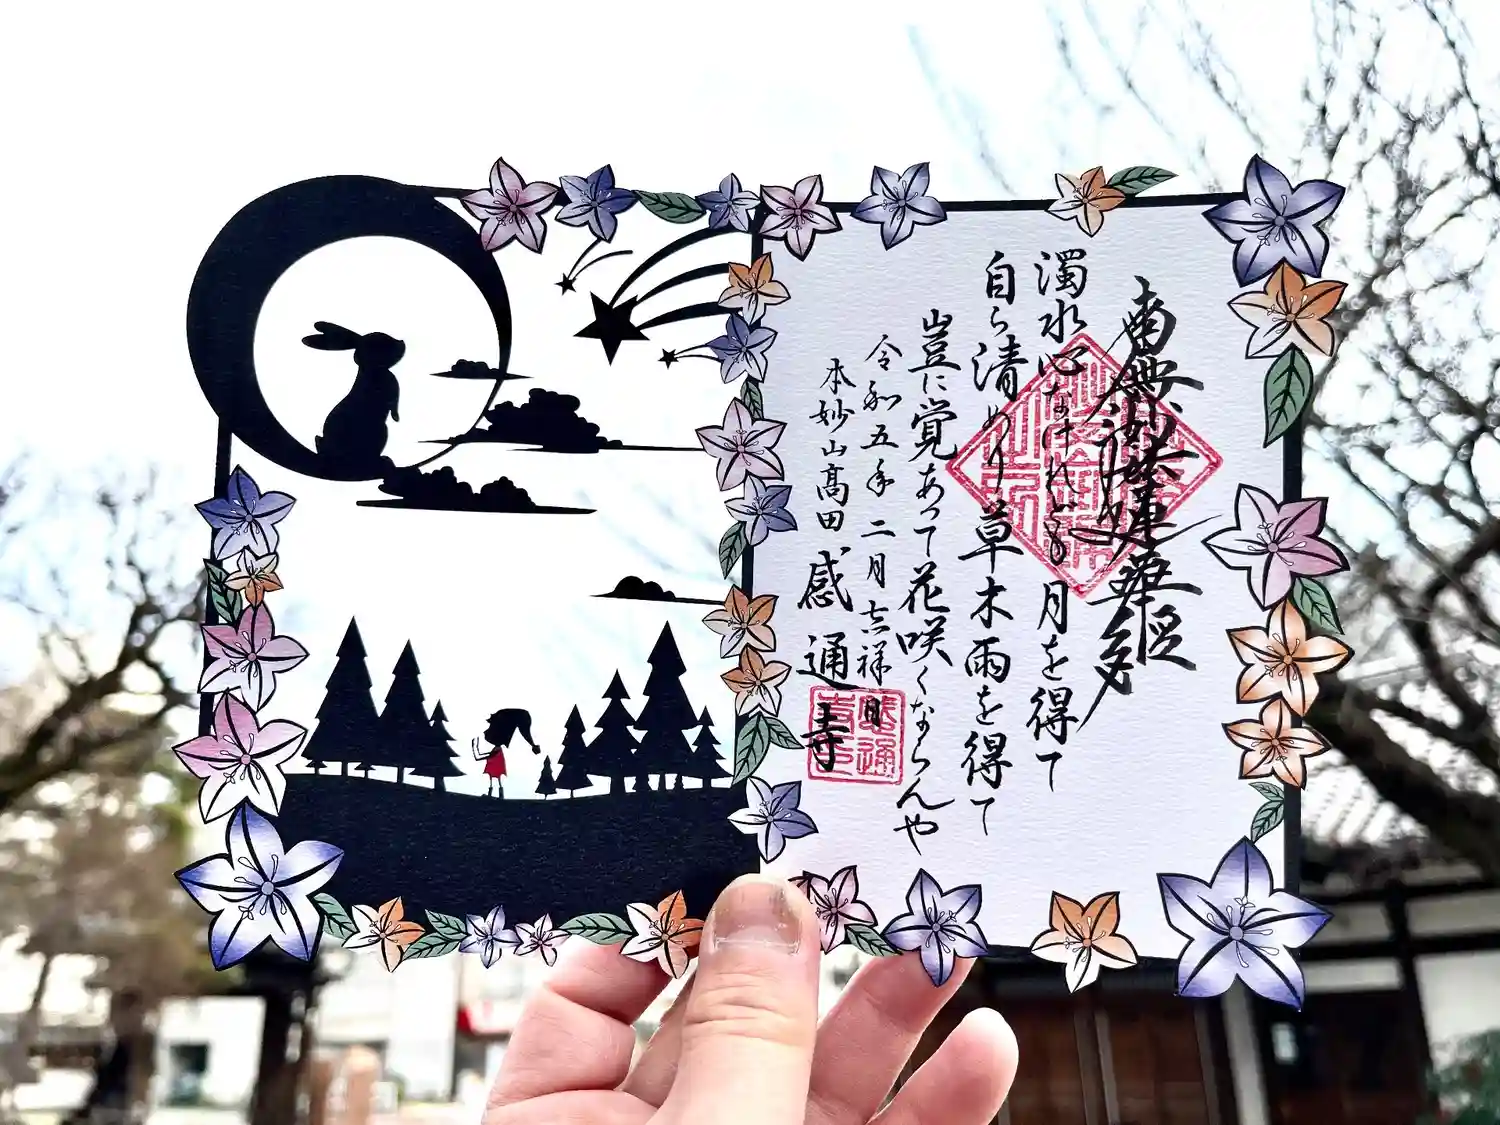 南無妙法蓮華経
濁水心なけれども月を得て
自ら清めり草木雨を得て
豈に覚あって花咲くならんや
令和五年二月吉祥日
本妙山高田感通寺